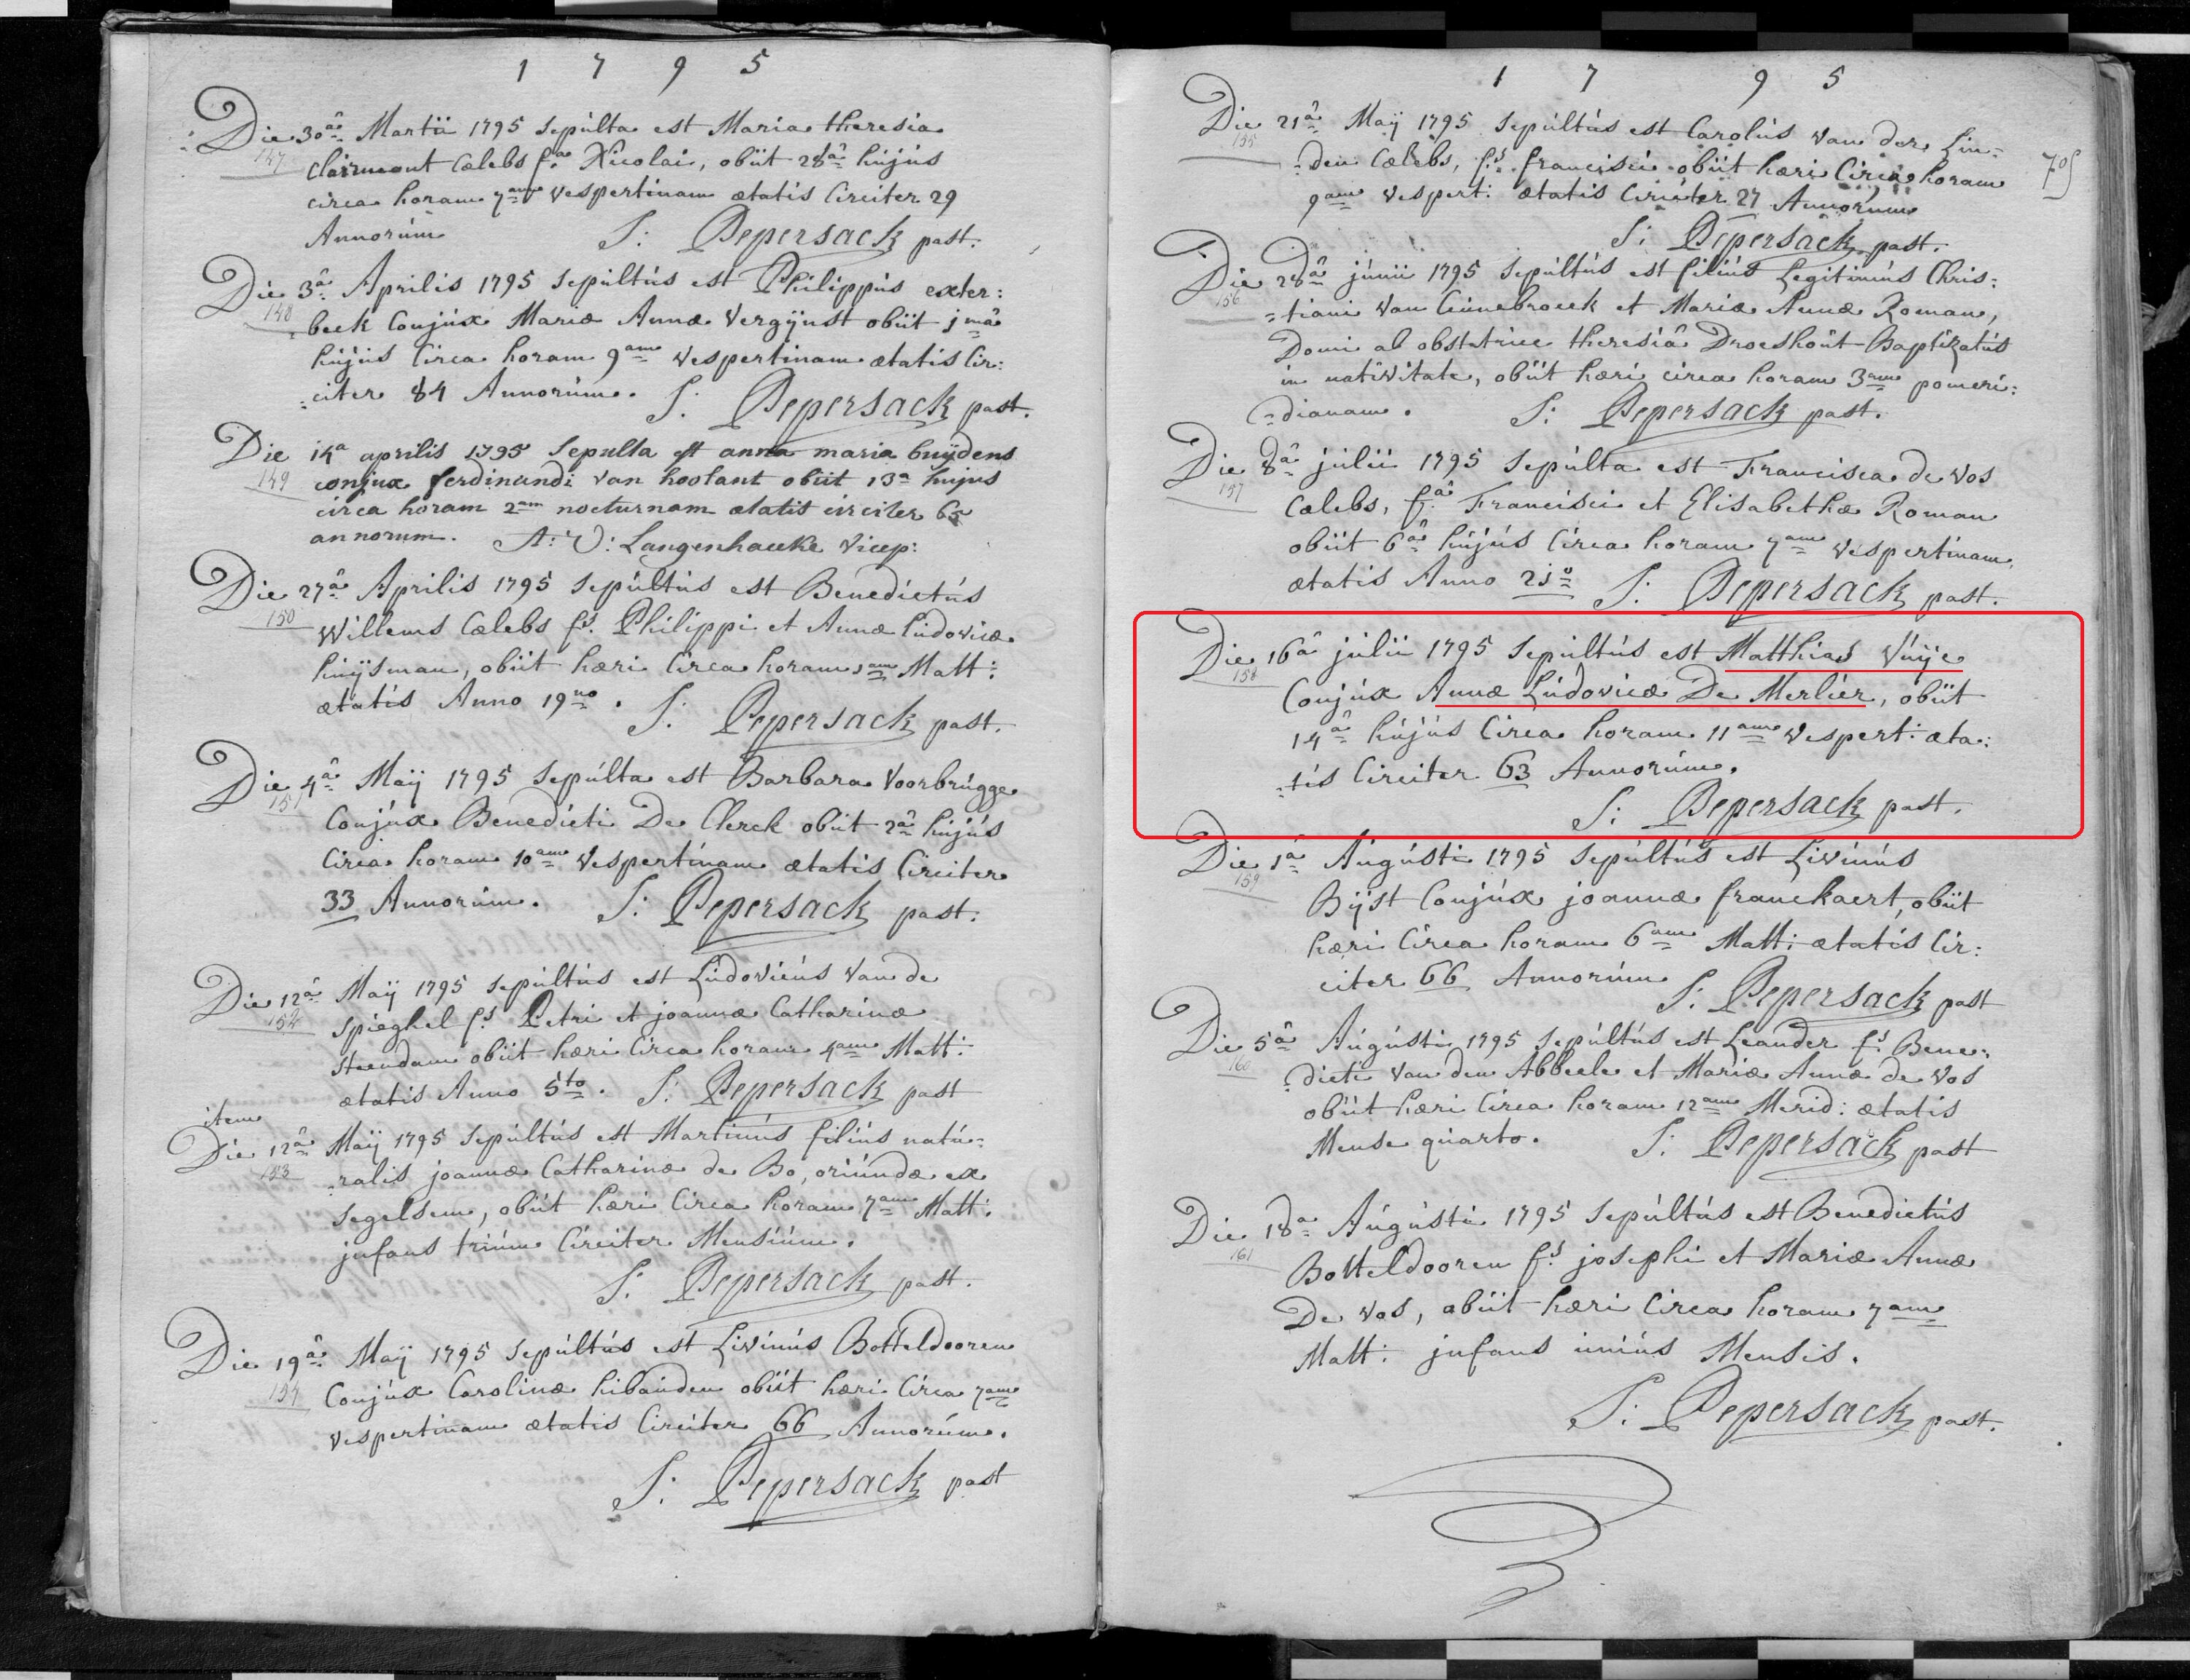 1 7 9 5
Die 30â Martii 1795 Sepúlta est Maria theresia
147
Clairmont Cælebs fa Nicolai, obiit 28â hújús
circa horam 7am Vespertinam ætatis Circiter 29
Annorúm S: Pepersack past.
Die 3â Aprilis 1795 Sepúltús est Philippús exter:
148
beek Conjúx Mariæ Annæ Vergÿnst obiit jmâ
hújús Circa horam 9am Vespertinam ætatis Cir:
:citer 84 Annorúm. S: Pepersack past.
Die 14a aprilis 1795 Sepulta est anna maria buÿdens
149
conjux ferdinandi van hoolant obiit 13a hujus
circa horam 2am nocturnam ætatis circiter 65
annorum. A: V: Langenhaecke Vicep:
Die 27â Aprilis 1795 Sepúltús est Benedictús
150
Willems Cælebs fs. Philippi et Annæ Lúdovicæ
húÿsman, obiit hæri Circa horam 1am Matt:
ætatis Anno 19no. S: Pepersack past.
Die 4â Maÿ 1795 Sepúlta est Barbara Voorbrúgge
151
Conjúx Benedicti De Clerck obiit 2â hújús
Circa horam 10am Vespertinam ætatis Circiter
33 Annorúm. S: Pepersack past.
Die 12â Maÿ 1795 Sepúltús est Lúdovicús Van de
152
Spieghel fs. Petri et joannæ Catharinæ
Steendam obiit hæri Circa horam 4am Matt:
ætatis Anno 5to. S: Pepersack past
item
Die 12â Maÿ 1795 Sepúltús est Martinús filiús natú=
153
:ralis joannæ Catharinæ de Bo, oriúndæ ex
Segelsem, obiit hæri Circa horam 7am Matt:
jnfans triúm Circiter Mensiúm.
S: Pepersack past.
Die 19â Maÿ 1795 Sepúltús est Livinús Botteldooren
154
Conjúx Carolinæ hibaúden obiit hæri Circa 7am
Vespertinam ætatis Circiter 66 Annorúm.
S: Pepersack past
1 7 9 5
Die 21â Maÿ 1795 Sepúltús est Carolús Van der Lin=
155
:den Cælebs, fs. francisci obiit hæri Circa horam
9am Vespert: ætatis Circiter 27 Annorúm
S: Pepersack past.
Die 28â júnii 1795 Sepúltús est filiús Legitimús Chris:
156
=tiani Van Cúnebroeck et Mariæ Annæ Roman,
Domi ab obstetrice theresiâ Droeshoút Baptizatús
in nativitate, obiit hæri circa horam 3am pomeri:
=dianam. S: Pepersack past.
Die 8â júlii 1795 Sepúlta est Francisca de Vos
157
Cælebs, fa. Francisci et Elisabethæ Roman
obiit 6â hújús Circa horam 7am Vespertinam,
ætatis Anno 2jo S: Pepersack past.
Die 16â júlii 1795 Sepúltús est Matthias Vúÿe
158
Conjúx Annæ Lúdovicæ De Merlier, obiit
14â hújús Circa horam 11am Vespert: æta:
:tis Circiter 63 Annorúm.
S: Pepersack past.
Die 1â Aúgústi 1795 Sepúltús est Livinús
159
Bÿst Conjúx joannæ franckaert, obiit
hæri Circa horam 6am Matt: ætatis Cir:
citer 66 Annorúm S: Pepersack past
Die 5â Aúgústi 1795 Sepúltús est Leander fs. Bene:
160
:dicti Van den Abbeele et Mariæ Annæ de Vos
obiit hæri Circa horam 12am Merid: ætatis
Mense qúarto. S: Pepersack past
Die 18a Aúgústi 1795 Sepúltús est Benedictús
161
Botteldooren fs. josephi et Mariæ Annæ
De Vos, obiit hæri Circa horam 7am
Matt: jnfans úniús Mensis.
S: Pepersack past.